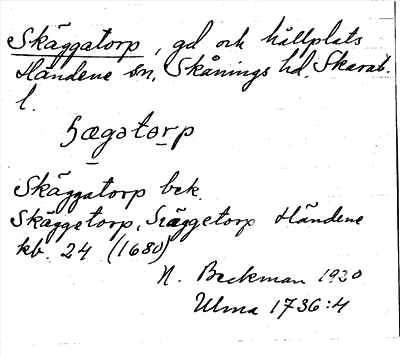 Skäggatorp, gd och hållplats
Händene sn, Skånings hd. Skarab.
l.
ʃægatorp
Skäggatorp bek.
Skäggetorp, Skäggetorp Händene
kb. 24 (1680)
N. Beckman 1920
Ulma 1736:4